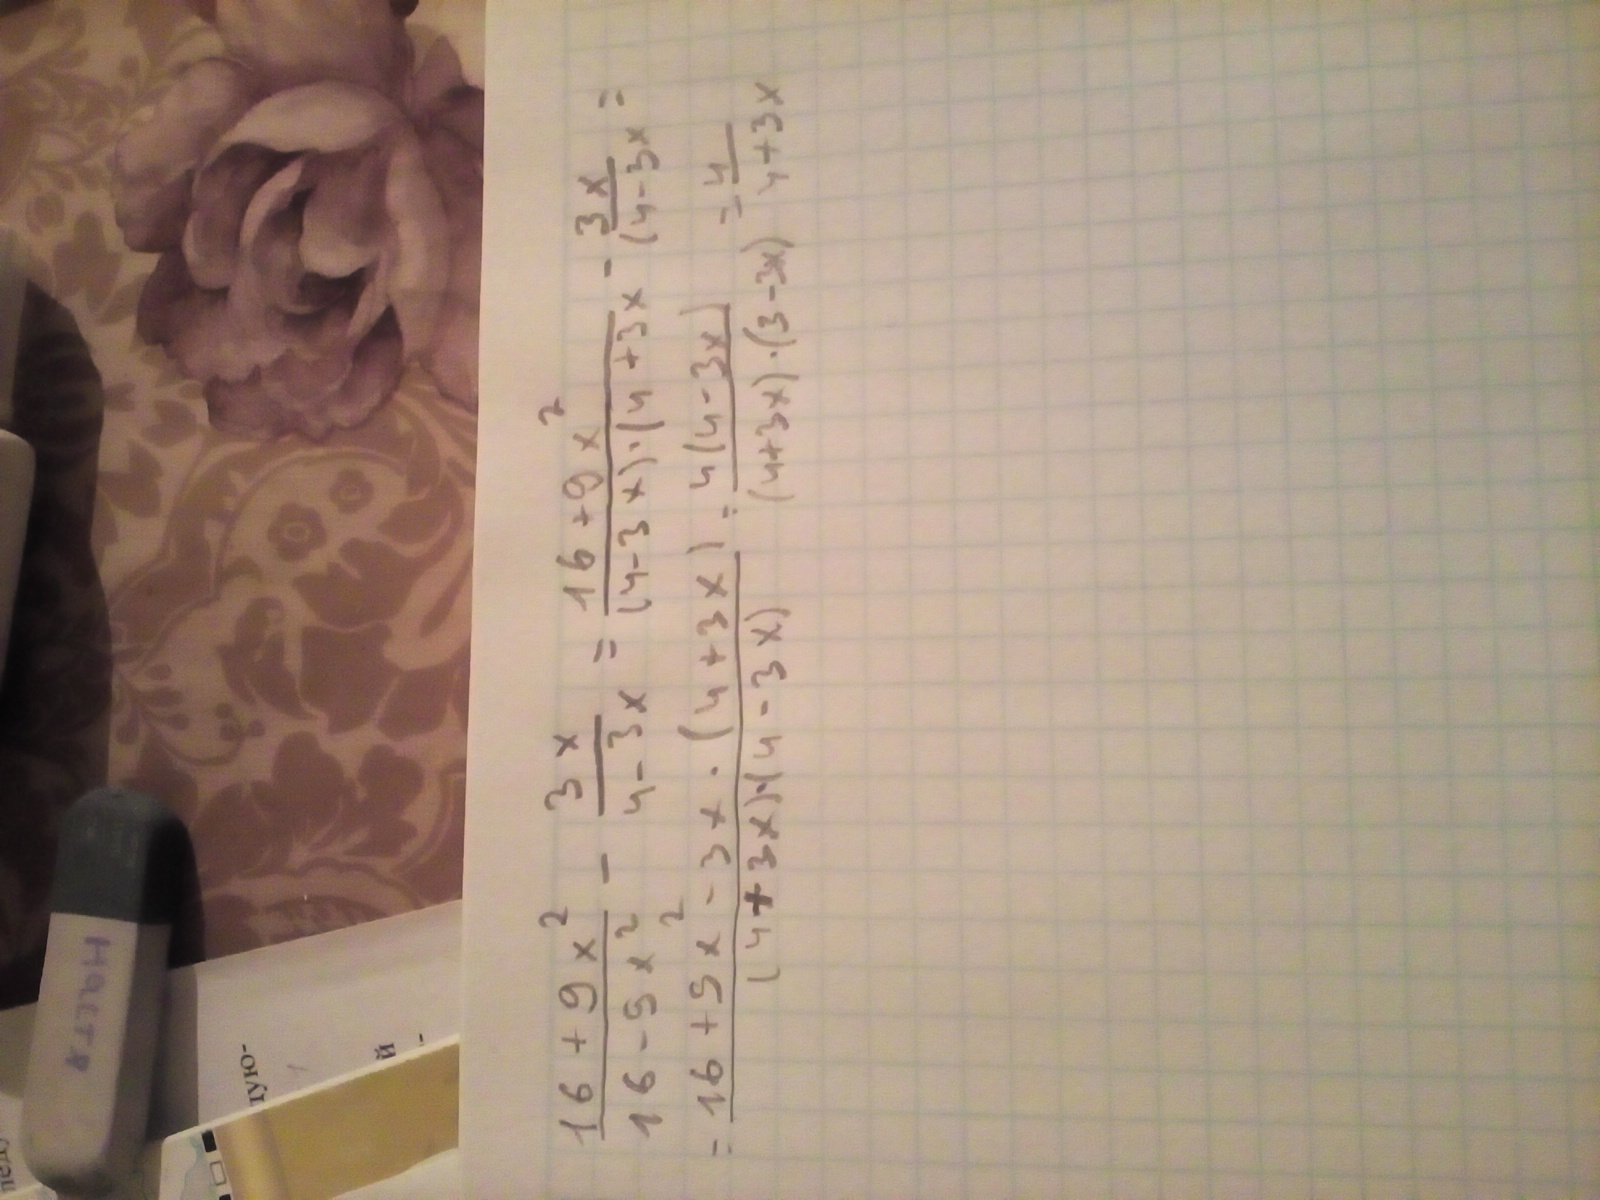 16 + 9x² / 16 - 9x² - 3x / 4 - 3x = 16 + 9x² / (4 - 3x) · (4 + 3x - 3x / (4 - 3x =
= 16 + 9x² - 3x · (4 + 3x) / (4 + 3x) · (4 - 3x) = 4(4 - 3x) / (4 + 3x) · (3 - 3x) = 4 / 4 + 3x
Настя
дую-
й